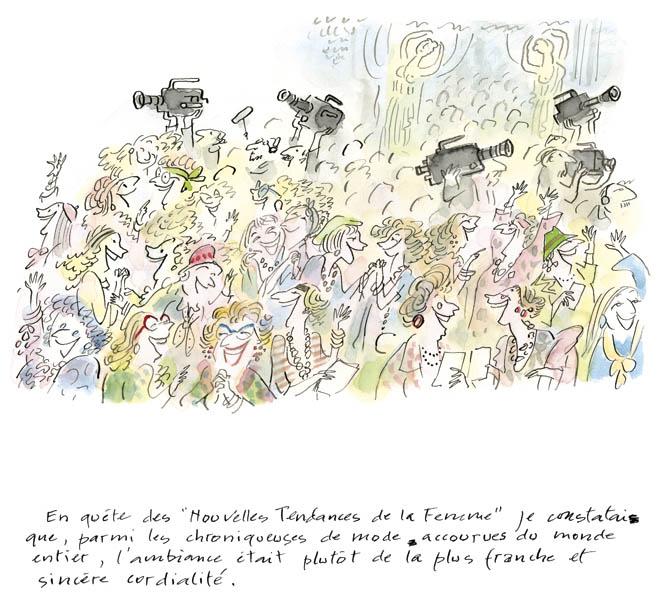 En quête des "Nouvelles Tendances de la Femme" je constatais
que, parmi les chroniqueuses de mode accourues du monde
entier, l'ambiance était plutôt de la plus franche et
sincère cordialité.